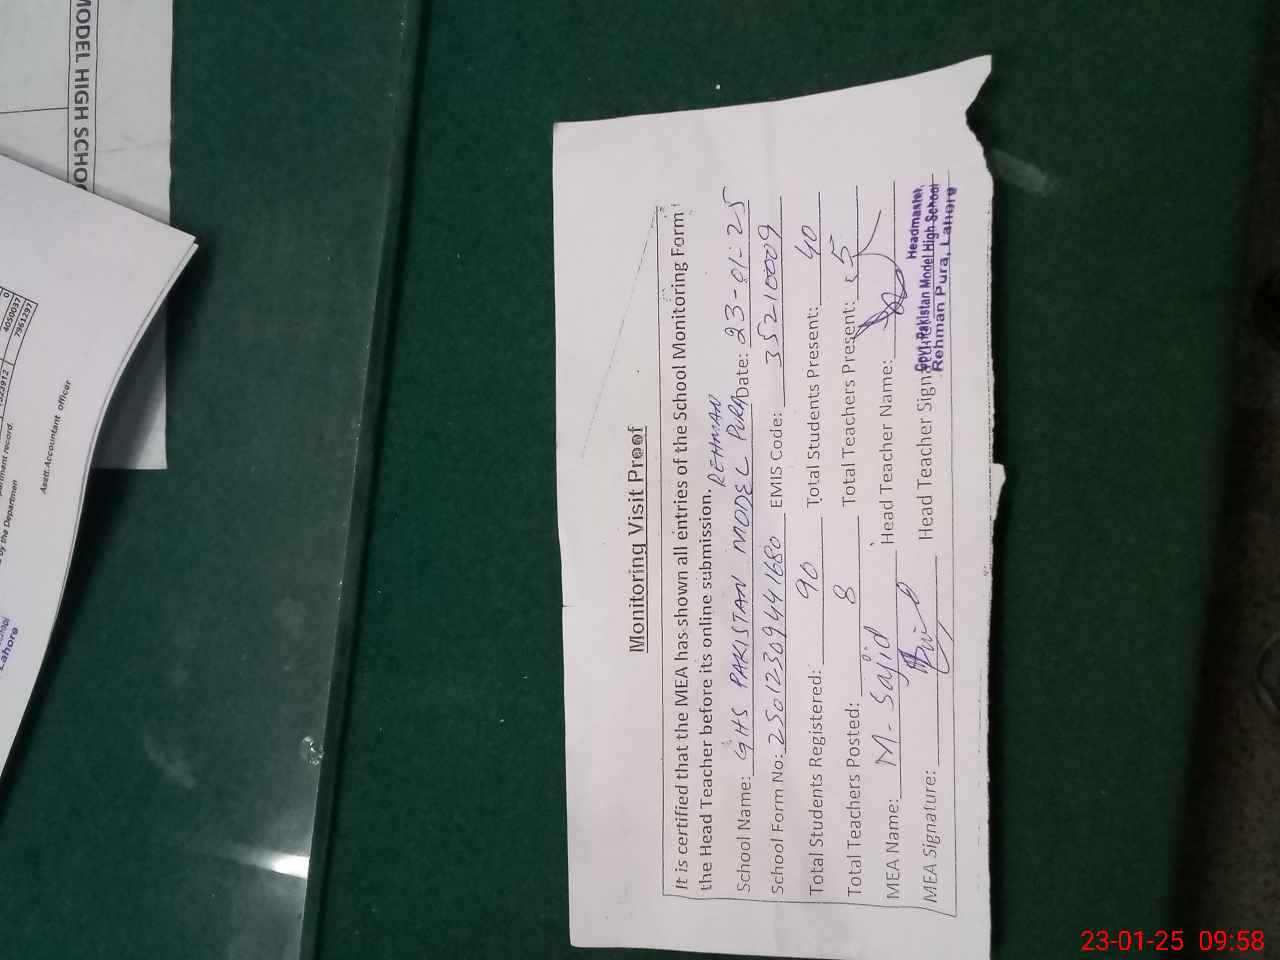 MODEL HIGH SCHO
0
4050037
7961297
Asstt:Accountant officer
Lahore
Monitoring Visit Proof
It is certified that the MEA has shown all entries of the School Monitoring Form
the Head Teacher before its online submission.
REHMAN
School Name: GHS PAKISTAN MODEL PURA Date: 23-01-25
School Form No: 2501230944 1680 EMIS Code: 35210009
Total Students Registered: 90 Total Students Present: 40
Total Teachers Posted: 8 Total Teachers Present: 5
MEA Name: M. Sajid Head Teacher Name:
MEA Signature: Head Teacher Sign
Headmaster,
Govt. Pakistan Model High School
Rehman Pura, Lahore
23-01-25 09:58